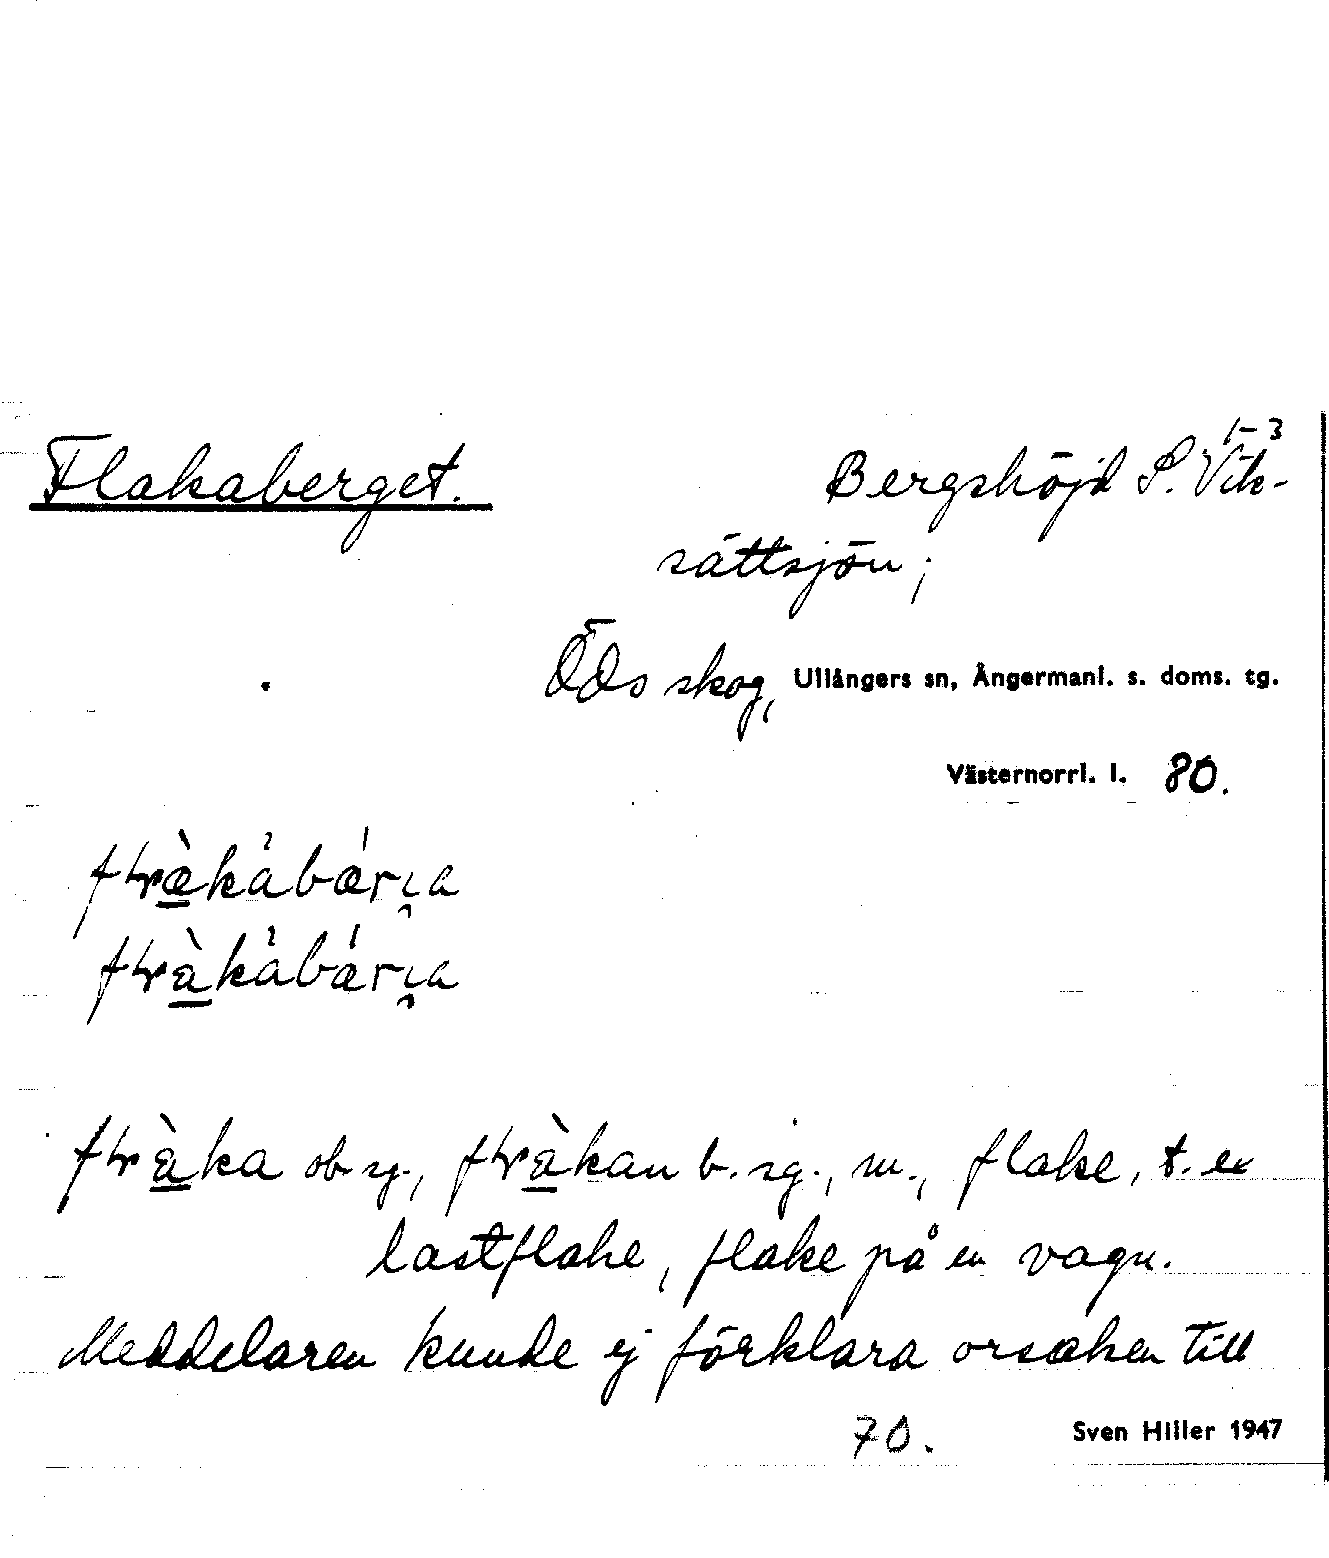 Flakaberget.
1-3
Bergshöjd S. Vik-
sättsjön;
Öds skog, Ullångers sn, Ångermanl. s. doms. tg.
Västernorrl. l. 80.
ob. sg., b. sg., m., flake, t. ex
lastflake, flake på en vagn.
Meddelaren kunde ej förklara orsaken till
70. Sven Hiller 1947